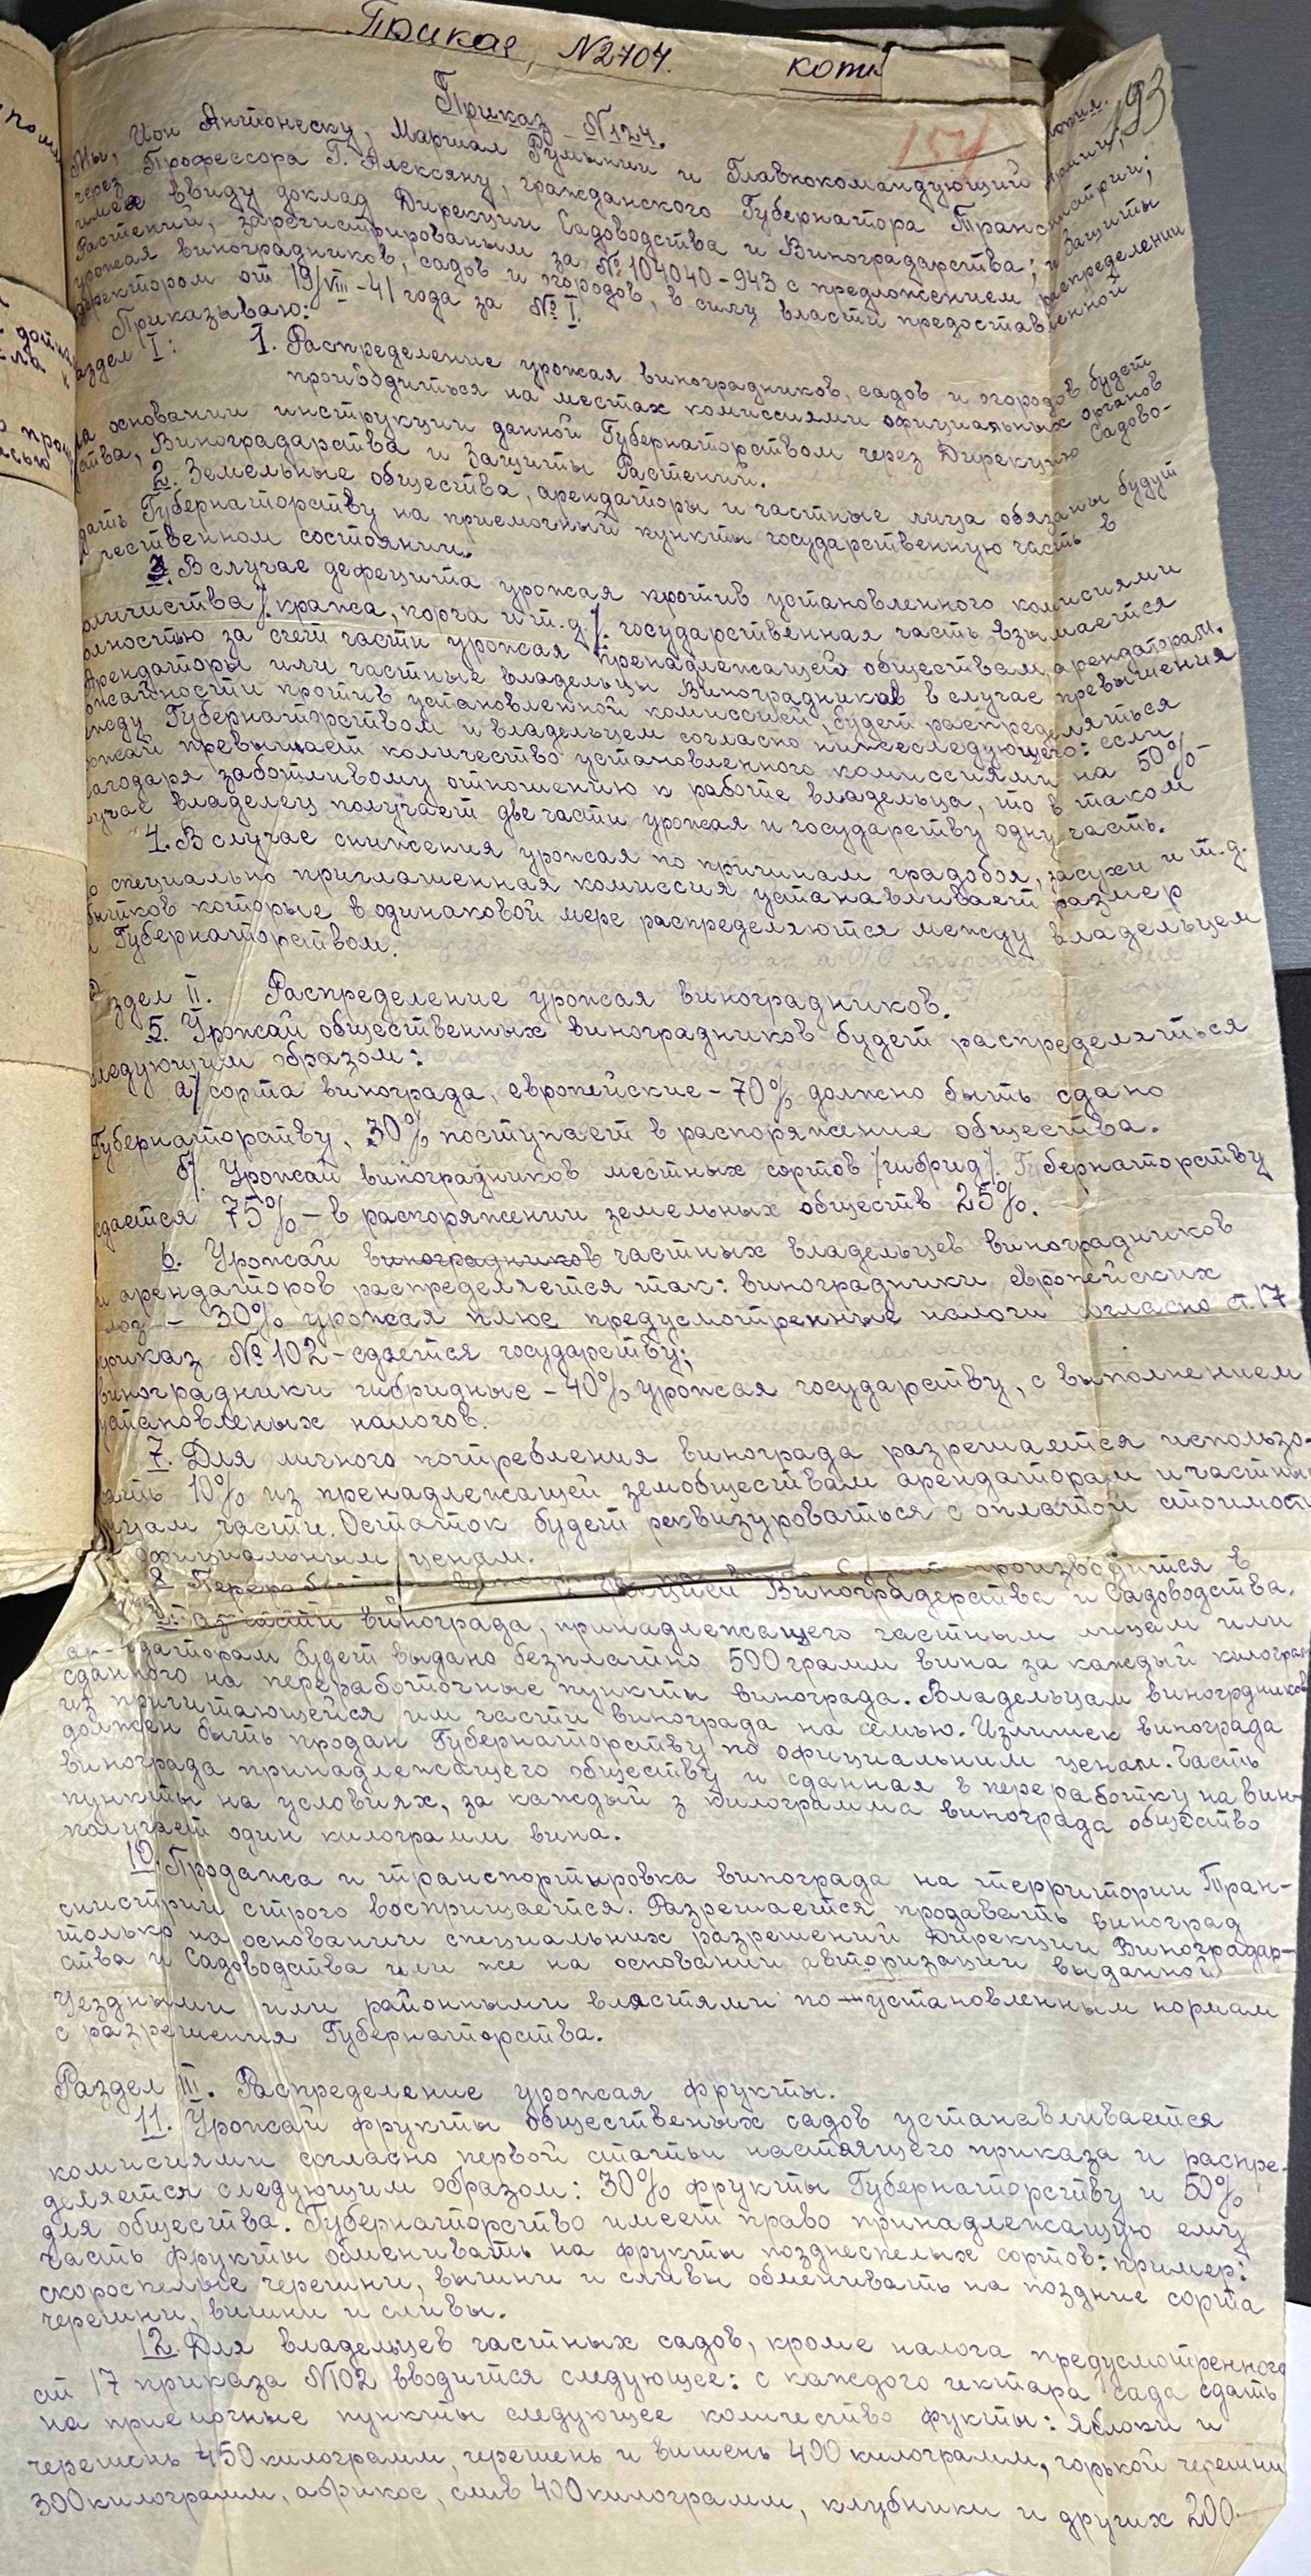 Приказ, N2704. копи
Приказ N124. копия. 193
154
Мы, Ион Антонеску, Маршал Румынии и Главнокомандующий Армии;
через Профессора Г. Алексяну, гражданского Губернатора Транснистрии;
имея ввиду доклад Дирекции Садоводства и Виноградарства; и Защиты
Растений, зарегистрированым за №104040-943 с предложением распределении
урожая виноградников, садов и огородов, в силу власти предоставленной
директором от 19/VIII-41 года за № I.
Приказываю:
аздел I: 1. Распределение урожая виноградников, садов и огородов будет
производиться на местах комиссиями официальных органов
на основании инструкции данной Губернаторством через Дирекцию Садово-
ства, Виноградарства и Защиты Растений.
2. Земельные общества, арендаторы и частные лица обязаны будут
дать Губернаторству на приемочный пункты государственную часть в
чественном состоянии.
3. В случае дефецита урожая против установленного комисиями
оличиства /. кража, порча и т.д./. государственная часть взымается
олностью за счет части урожая пренадлежащей обществам, арендаторам.
Арендаторы или частные владельцы Виноградников в случае превышения
ожайности против установленной комиссией, будет распределяться
жду Губернаторством и владельцем согласно нижеследующего: если
ожай превышает количество установленного комиссиями на 50%-
агодаря заботливому отношению к работе владельца, то в таком
учае владелец получает две части урожая и государству одну часть.
4. В случае снижения урожая по причинам градобоя, засухи и т.д.
о специально приглашенная комиссия устанавливает размер
бытков которые в одинаковой мере распределяются между владельцем
и Губернаторством.
здел II. Распределение урожая виноградников.
5. Урожай общественных виноградников будет распределяться
ледующим образом:
а/ сорта винограда, европейские - 70% должно быть сдано
Губернаторству, 30% поступает в распоряжение общества.
б/. Урожай виноградников местных сортов /гибрид/. Губернаторству
сдается 75% - в распоряжении земельных обществ 25%.
6. Урожай виноградников частных владельцев виноградников
и арендаторов распределяется так: виноградники европейских
лоз - 30% урожая плюс предусмотренные налоги согласно ст. 17
приказ № 102 - сдается государству;
виноградники гибридные - 40% урожая государству, с выполнением
установленых налогов.
7. Для личного потребления винограда разрешается использо-
вать 10% из пренадлежащей земобществам арендаторам и частны
лицам части. Остаток будет реквизуроваться с оплатой стоимост
официальным ценам.
8 Перераб производится в
Виноградерства и Садоводства.
части винограда, принадлежащего частным лицам или
ар-даторам будет выдано безплатно 500 грамм вина за каждый килограм
сданного на переработочные пункты винограда. Владельцам виногрдников
из причитающейся им части винограда на семью. Излишек винограда
должен быть продан Губернаторству по официальним ценам. Часть
винограда принадлежащего обществу и сданная в переработку на вин-
пункты на условиях, за каждый 3 килограмма винограда общество
получает один килограмм вина.
10. Продажа и транспортировка винограда на территории Тран-
снистрии строго восприщается. Разрешается продавать виноград
только на основании специальних разрешений Дирекции Виноградар-
ства и Садоводства или же на основании авторизации выданной
Уездными или районными властями по установленным нормам
с разрешения Губернаторства.
Раздел III. Распределение урожая фрукты.
11. Урожай фрукты общественых садов устанавливается
комисиями согласно первой статьи настоящего приказа и распре-
деляется следующим образом: 30% фрукты Губернаторству и 50%
для общества. Губернаторство имеет право принадлежащую ему
часть фрукты обменивать на фрукты позднеспелых сортов: пример:
скороспелые черешни, вишни и сливы обменивать на поздние сорта
черешни, вишни и сливы.
12. Для владельцев частных садов, кроме налога предусмотренного
ст 17 приказа №102 вводится следующее: с каждого гектара сада сдать
на приемочные пункты следующее количество фукты: яблоки и
черешень 450 килограмм, черешень и вишень 400 килограмм, горькой черешни
300 килограмм, абрикос, слив 400 килограмм, клубники и других 200